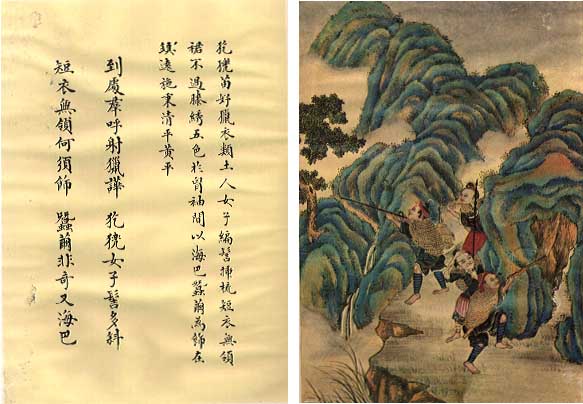 犵苗好獵衣類土人女子編髻插梳短衣無領
裙不過膝綉五色於胷袖間以海巴蠶繭為飾在
鎮遠施秉清平黃平
到處羣呼射獵譁 犵女子髻多斜
短衣無領何須飾 蠶繭非奇又海巴